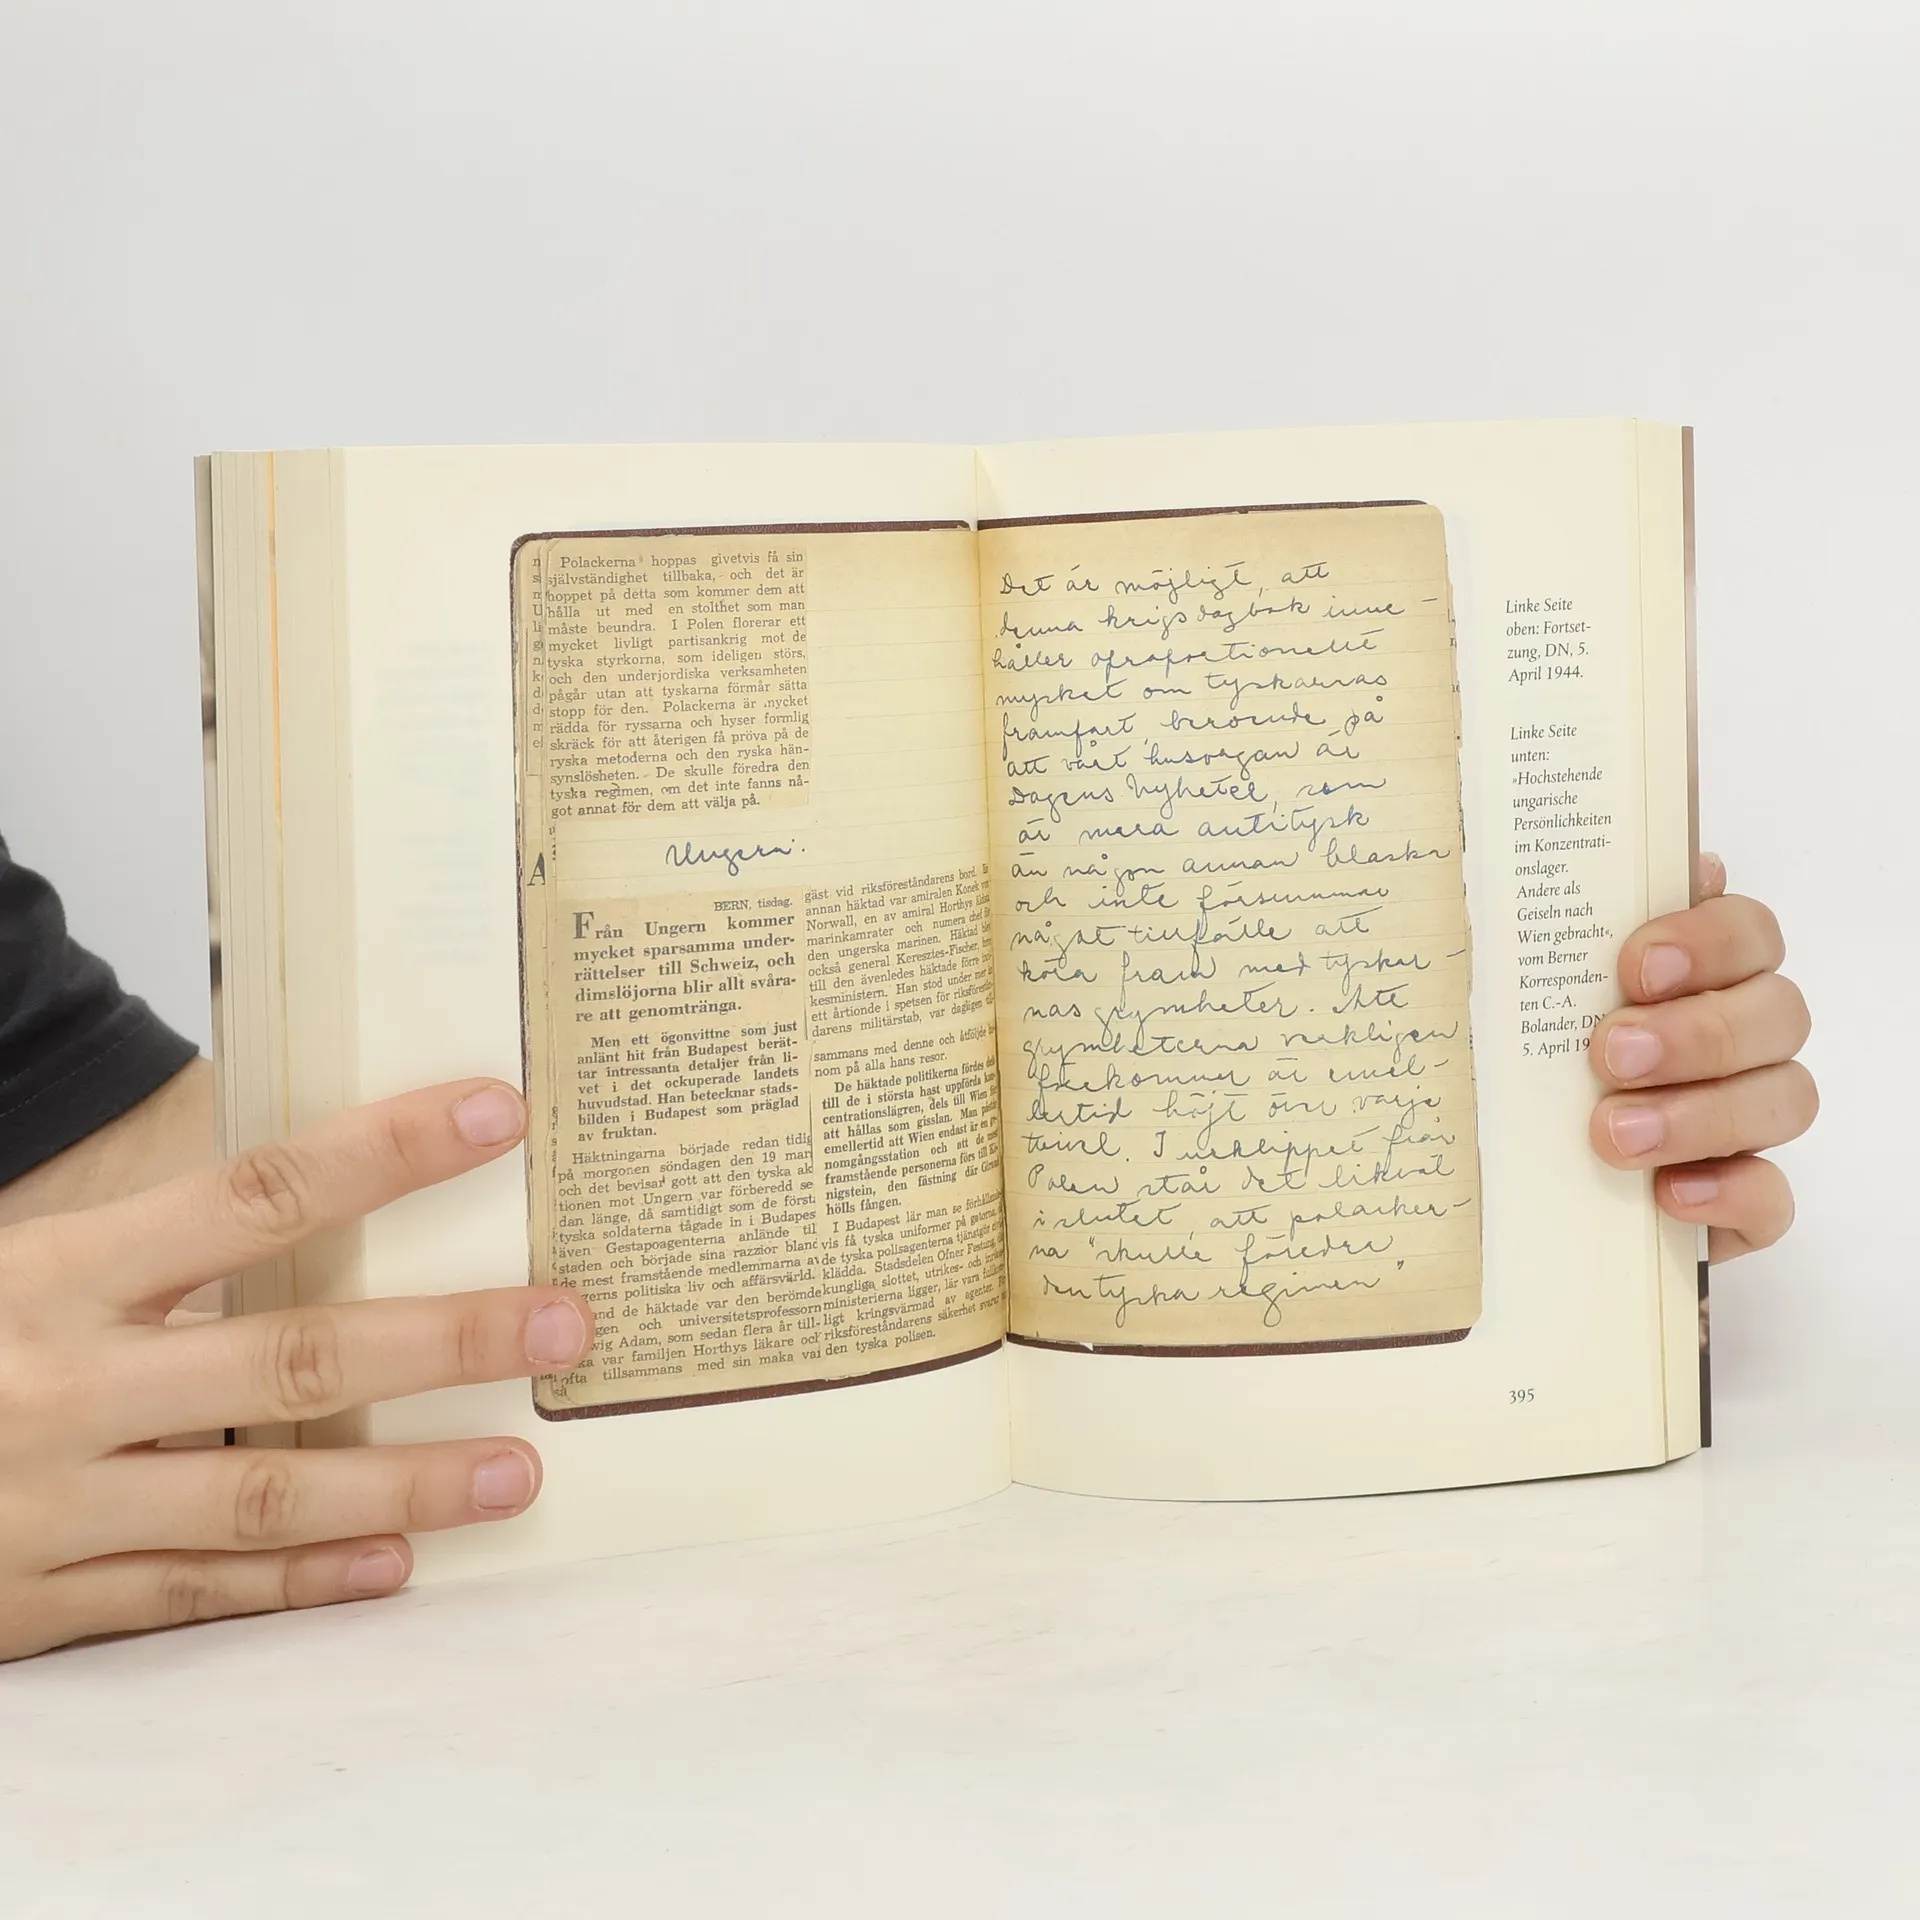 Polackerna hoppas givetvis få sin
självständighet tillbaka, och det är
hoppet på detta som kommer dem att
hålla ut med en stolthet som man
måste beundra. I Polen florerar ett
mycket livligt partisankrig mot de
tyska styrkorna, som ideligen störs,
och den underjordiska verksamheten
pågår utan att tyskarna förmår sätta
stopp för den. Polackerna är mycket
rädda för ryssarna och hyser formlig
skräck för att återigen få pröva på de
ryska metoderna och den ryska hän-
synslösheten. De skulle föredra den
tyska regimen, om det inte fanns nå-
got annat för dem att välja på.
Ungern:
BERN, tisdag.
Från Ungern kommer
mycket sparsamma under-
rättelser till Schweiz, och
dimslöjorna blir allt svåra-
re att genomtränga.
Men ett ögonvittne som just
anlänt hit från Budapest berät-
tar intressanta detaljer från li-
vet i det ockuperade landets
huvudstad. Han betecknar stads-
bilden i Budapest som präglad
av fruktan.
Häktningarna började redan tidig
på morgonen söndagen den 19 mar
och det bevisar gott att den tyska ak
tionen mot Ungern var förberedd se
dan länge, då samtidigt som de först
tyska soldaterna tågade in i Budapes
även Gestapoagenterna anlände till
staden och började sina razzior bland
de mest framstående medlemmarna av
gerns politiska liv och affärsvärld.
and de häktade var den berömde
gen och universitetsprofessorn
wig Adam, som sedan flera år till-
ka var familjen Horthys läkare och
ofta tillsammans med sin maka var
så
gäst vid riksföreståndarens bord. En
annan häktad var amiralen Konek von
Norwall, en av amiral Horthys äldsta
marinkamrater och numera chef för
den ungerska marinen. Häktad blev
också general Keresztes-Fischer, bror
till den ävenledes häktade förre inri-
kesministern. Han stod under mer än
ett årtionde i spetsen för riksförestån-
darens militärstab, var dagligen till-
sammans med denne och åtföljde ho-
nom på alla hans resor.
De häktade politikerna fördes dels
till de i största hast uppförda kon-
centrationslägren, dels till Wien för
att hållas som gisslan. Man påstår
emellertid att Wien endast är en ge-
nomgångsstation och att de mest
framstående personerna förs till Kö-
nigstein, den fästning där Giraud
hölls fången.
I Budapest lär man se förhållandevis
vis få tyska uniformer på gatorna,
de tyska polisagenterna tjänstgör civil-
klädda. Stadsdelen Ofner Festung, där
kungliga slottet, utrikes- och inrikes-
ministerierna ligger, lär vara fullkom-
ligt kringsvärmad av agenter. För
riksföreståndarens säkerhet svarar
den tyska polisen.
Det är möjligt, att
denna krigsdagbok inne-
håller oproportionellt
mycket om tyskarnas
framfart, beroende på
att vårt husorgan är
Dagens Nyheter, som
är mera antitysk
än någon annan blaska
och inte försummar
något tillfälle att
köra fram med tyskar-
nas grymheter. Att
grymheterna verkligen
förekommer är emel-
lertid höjt över varje
tvivel. I urklippet från
Polen står det likväl
i slutet, att polacker-
na "skulle föredra
den tyska regimen"
Linke Seite
oben: Fortset-
zung, DN, 5.
April 1944.
Linke Seite
unten:
»Hochstehende
ungarische
Persönlichkeiten
im Konzentrati-
onslager.
Andere als
Geiseln nach
Wien gebracht«,
vom Berner
Korresponden-
ten C.-A.
Bolander, DN
5. April 19
395